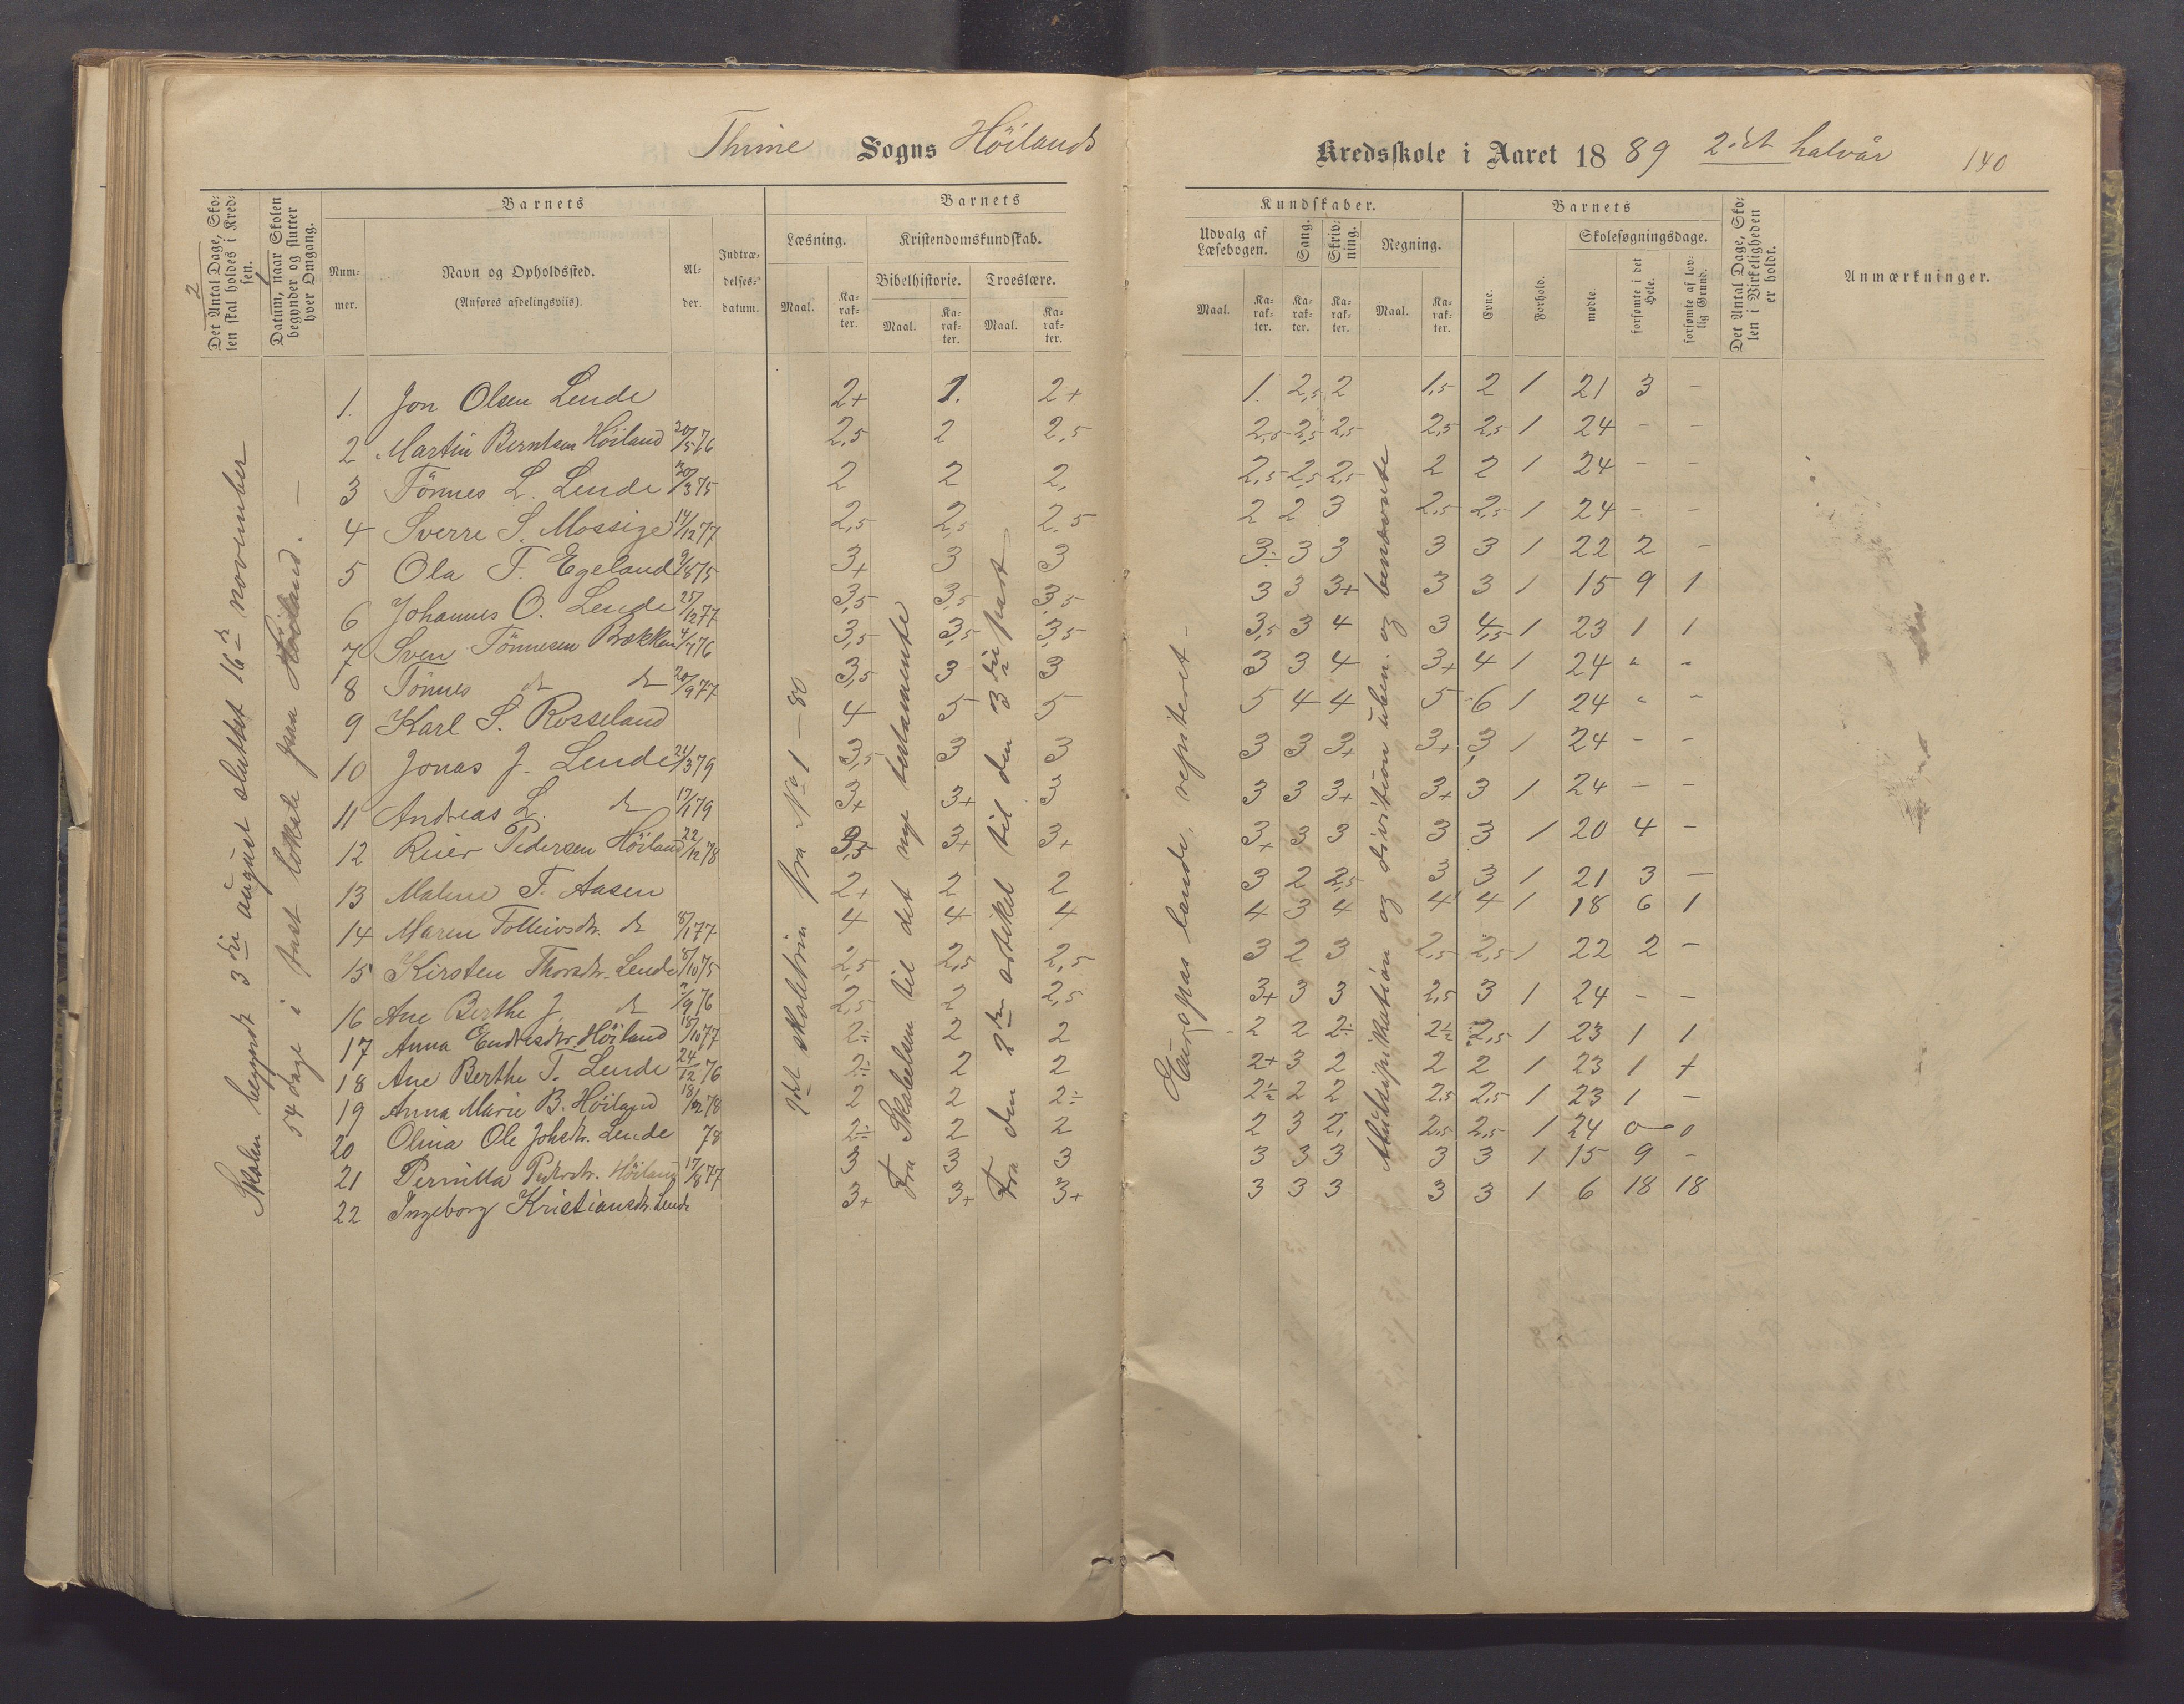 Thime Sogns Höilands
Kredsskole i Aaret 1889 2det halvår 140
Det Antal Dage, Skolen skal holdes i Kredsen.
Datum, naar Skolen begynder og slutter hver Omgang.
Barnets
Nummer.
Navn og Opholdssted.
(Anføres afdelingsviis).
Alder.
Indtrædelsesdatum.
Barnets
Læsning.
Kristendomskundskab.
Bibelhistorie. Troeslære.
Maal. Karakter. Maal. Karakter. Maal. Karakter.
Kundskaber.
Udvalg af Læsebogen. Sang. Skrivning. Regning.
Maal. Karakter. Karakter. Karakter. Maal. Karakter.
Barnets
Evne. Forhold.
Skolesøgningsdage.
mødte. forsømte i det Hele. forsømte af lovlig Grund.
Det Antal Dage, Skolen i Virkeligheden er holdt.
Anmærkninger.
Skolen begyndt 3die august sluttet 16de november
54 dage i fast lokale paa
skoletrin fra No 1 – 80
Fra Skabelsen til det nye testamente
Fra den 2den artikel til den 3die part
Europas lande, repiteret –
Multiplikation og division uben. og benævnte
1. Jon Olsen Lende 2+ 1. 2+ 1. 2,5 2 1,5 2 1 21 3 –
2 Martin Berntsen Höiland 20/5 76 2,5 2 2,5 2,5 2,5 2,5 2,5 2,5 1 24 – –
3 Tönnes L. Lende 20/3 75 2 2 2, 2,5 2,5 2,5 2 2 1 24 – –
4 Sverre S. Mossige 14/12 77 2,5 2,5 2,5 2 2 3 2,5 2,5 1 24 – –
5 Ola T. Egeland 9/8 75 3+ 3 3 3÷ 3 3 3 3 1 22 2 –
6 Johannes O. Lende 27/12 77 3,5 3,5 3,5 3 3 3+ 3 3 1 15 9 1
7 Sven Tönnesen Bækken 4/7 76 3,5 3,5 3,5 3,5 3 4 3 4,5 1 23 1 1
8 Tönnes do do 20/9 77 3,5 3 3 3 3 4 3+ 4 1 24 " –
9 Karl S. Rosseland 4 5 5 5 4 4 5 6 1 24 " –
10 Jonas J. Lende 21/3 79 3,5 3 3 3 3 3+ 3+ 3 1 24 – –
11 Andreas L. do 17/1 79 3+ 3+ 3 3 3 3+ 3+ 3 1 24 – –
12 Reier Pedersen Höiland 22/12 78 3,5 3+ 3+ 3+ 3 3 3 3 1 20 4 –
13 Malene T. Aasen 2+ 2 2 3 2 2,5 3 3 1 21 3 –
14 Maren Tolleivsdtr. do 8/1 77 4 4 4 4 3 4 4 4 1 18 6 1
15 Kirsten Thorsdtr. Lende 8/10 75 2,5 2,5 2,5 3 2 3 2,5 2,5 1 22 2 –
16 Ane Berthe J. do 7/9 76 2,5 2 2,5 3+ 3 3 2,5 3 1 24 – –
17 Anna Endresdtr. Höiland 15/10 77 2÷ 2 2 2 2 2÷ 2÷ 2,5 1 23 1 1
18 Ane Berthe T. Lende 24/12 76 2÷ 2 2 2+ 3 2 2 2 1 23 1 +
19 Anna Marie B. Höiland 18/12 78 2 2 2÷ 2÷ 2 2 2,5 2,5 1 23 1 –
20 Olina Ole Johsdtr. Lende 78 2÷ 2 2 2 3 2, 2,5 2,5 1 24 0 0
21 Pernilla Pedersdtr. Höiland 17/8 77 3 3 3 3 3 3 3 3 1 15 9 –
22 Ingeborg Kristiansdtr. Lende 3+ 3+ 3+ 3 3 3 3 3 1 6 18 18